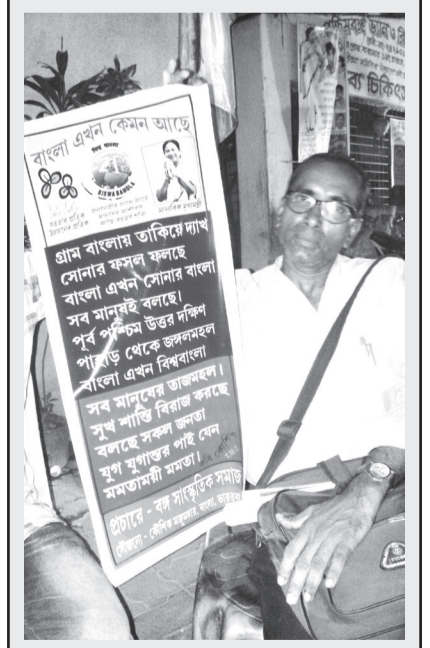 বাংলা এখন কেমন আছে
BISWA BANGLA
গ্রাম বাংলায় তাকিয়ে দ্যাখ
সোনার ফসল ফলছে
বাংলা এখন সোনার বাংলা
সব মানুষই বলছে।
পূর্ব পশ্চিম উত্তর দক্ষিণ
পাহাড় থেকে জঙ্গলমহল
বাংলা এখন বিশ্ববাংলা
সব মানুষের তাজমহল।
সুখ শান্তি বিরাজ করছে
বলছে সকল জনতা
যুগ যুগান্তর পাই যেন
মমতাময়ী মমতা।
প্রচারে - বঙ্গ সাংস্কৃতিক সমাজ
সৌজন্যে - কৌশিক মজুমদার, বাংলা,